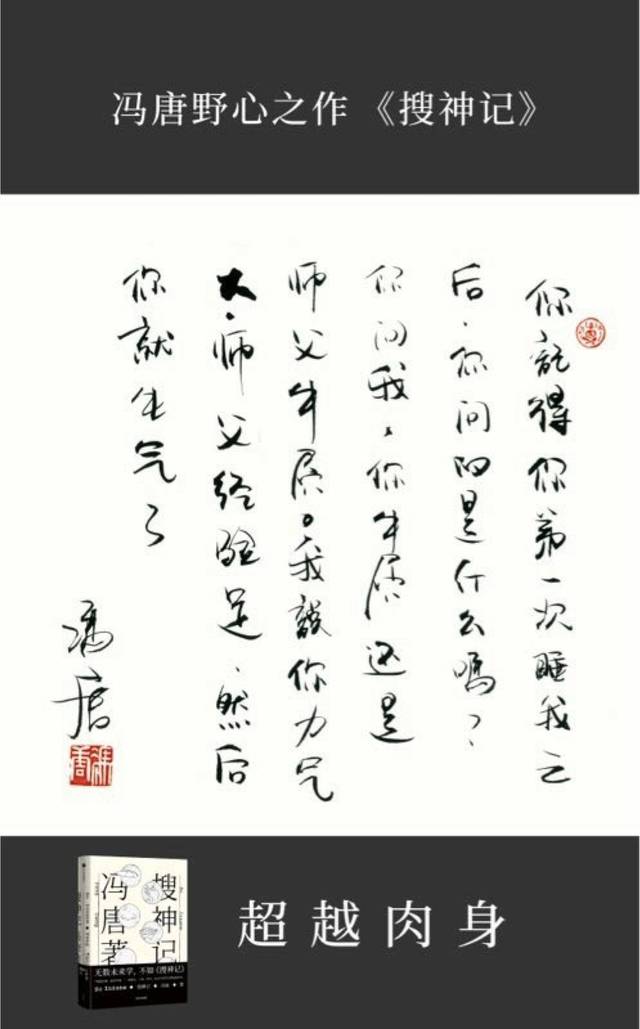 冯唐野心之作《搜神记》
你记得你第一次睡我之
后，你问的是什么吗？
你问我，你牛屄还是
师父牛屄。我说你力气
大，师父经验足，然后
你就生气了
冯唐
搜神记
冯唐著
无数未来学，不如《搜神记》
超越肉身